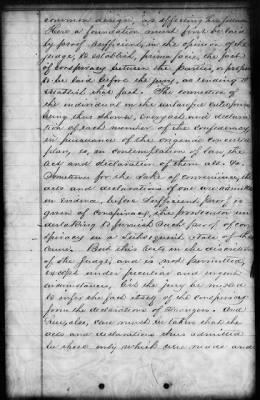 common design, as affecting his fellows.
Here a foundation must first be laid
by proof, sufficient, in the opinion of the
judge, to establish, prima facie, the fact
of conspiracy between the parties, or proper
to be laid before the jury, as tending to
establish that fact. The connection of
the individuals in the unlawful enterprise
being thus shown, every act, and declara-
tion of each member of the confederacy
in pursuance of the original concerted
plan, is, in contemplation of law, the
act and declaration of them all.
Sometimes for the sake of convenience, the
acts and declarations of one are admitted
in evidence, before sufficient proof is
given of conspiracy, the prosecutor un-
dertaking to furnish such proof of con-
spiracy in a subsequent stage of the
cause. But this rests in the discretion
of the judge, and is not permitted,
except under peculiar and urgent
circumstances, lest the jury be misled
to infer the fact itself of the conspiracy
from the declarations of strangers. And
here, also, care must be taken that the
acts and declarations thus admitted
be those only which were made and